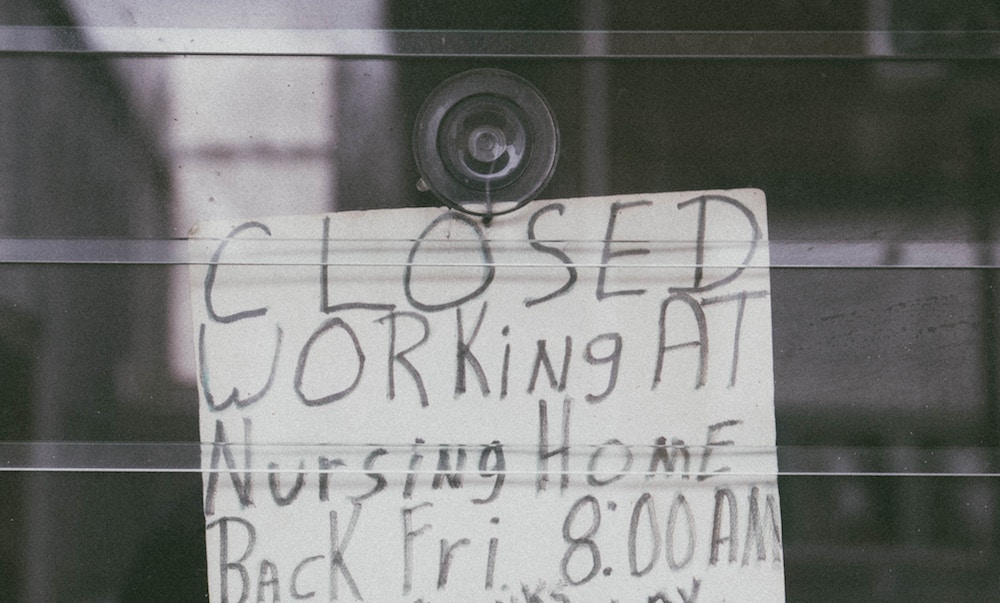 CLOSED
WORKiNg AT
NursiNg HomE
BacK Fri. 8:00 AM